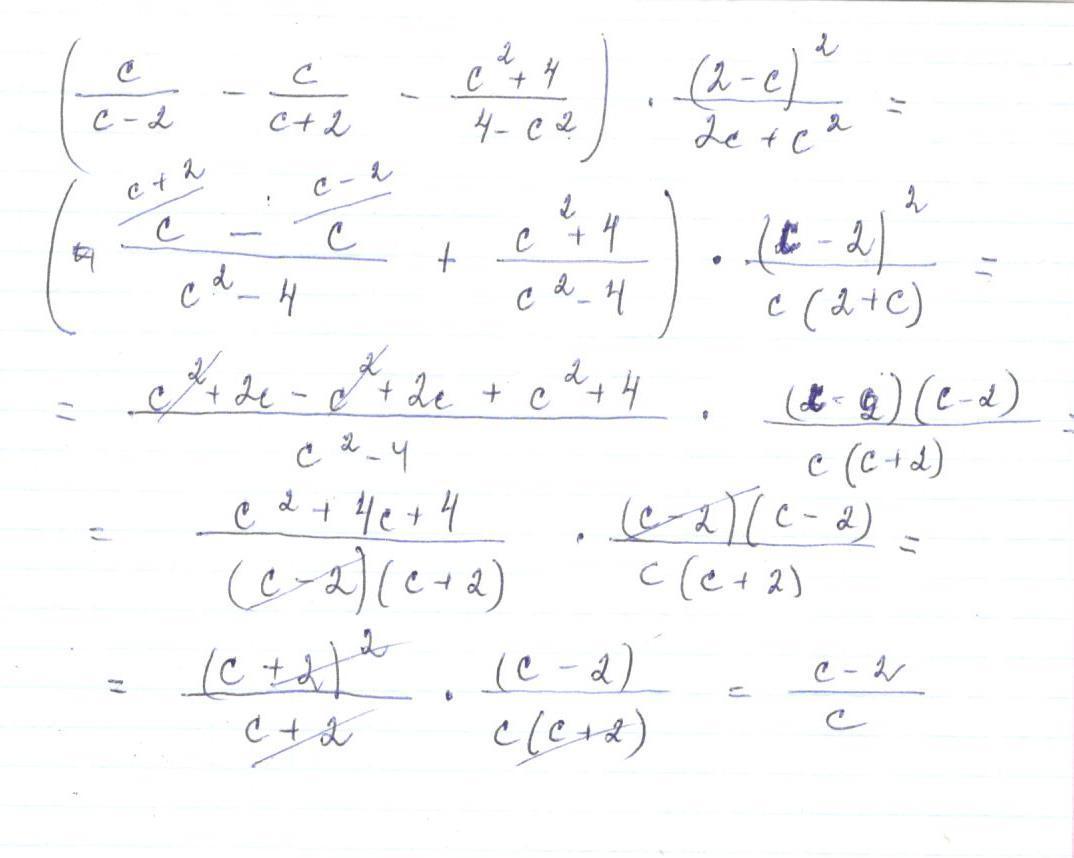 (c/(c-2) - c/(c+2) - (c²+4)/(4-c²)) · (2-c)²/(2c+c²) =
((c+2/c - c-2/c)/(c²-4) + (c²+4)/(c²-4)) · (c-2)²/(c(2+c)) =
= (c²+2c-c²+2c+c²+4)/(c²-4) · ((c-2)(c-2))/(c(c+2)) =
= (c²+4c+4)/((c-2)(c+2)) · ((c-2)(c-2))/(c(c+2)) =
= (c+2)²/(c+2) · (c-2)/(c(c+2)) = (c-2)/c